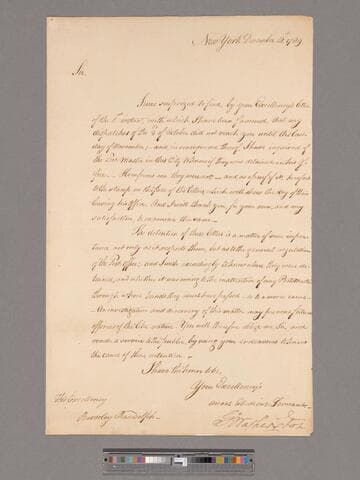 New York December 14th 1789.
Sir,
I was surprized to find, by your Excellency's letter
of the 5th instant, with which I have been favoured, that my
dispatches of the 3d of October did not reach you until the last
day of November; and in consequence thereof, I have enquired of
the Post Master in this City
He informs me they were not — and as a proof of it
to the stamp on the face of the letter, which will shew the day of their
leaving his Office. And I will thank you, for your own, and my
satisfaction, to examine the same.—
The detention of these letters is a matter of some impor-
tance not only as it respects them, but as to the general regulation
of the Post Office; and I wish exceedingly to know where they were de-
tained, and whether it was owing to the inattention of any Post Master
through whose hands they must have passed — or to a worse cause.—
An investigation and discovery of this matter may prevent future
offences of the like nature. You will therefore oblige me Sir, and
render a service to the public by using your endeavours to know
the cause of their detention.—
I have the honor to be
Your Excellency's
most Obedient Servant
Go Washington
His Excellency
Beverley Randolph.